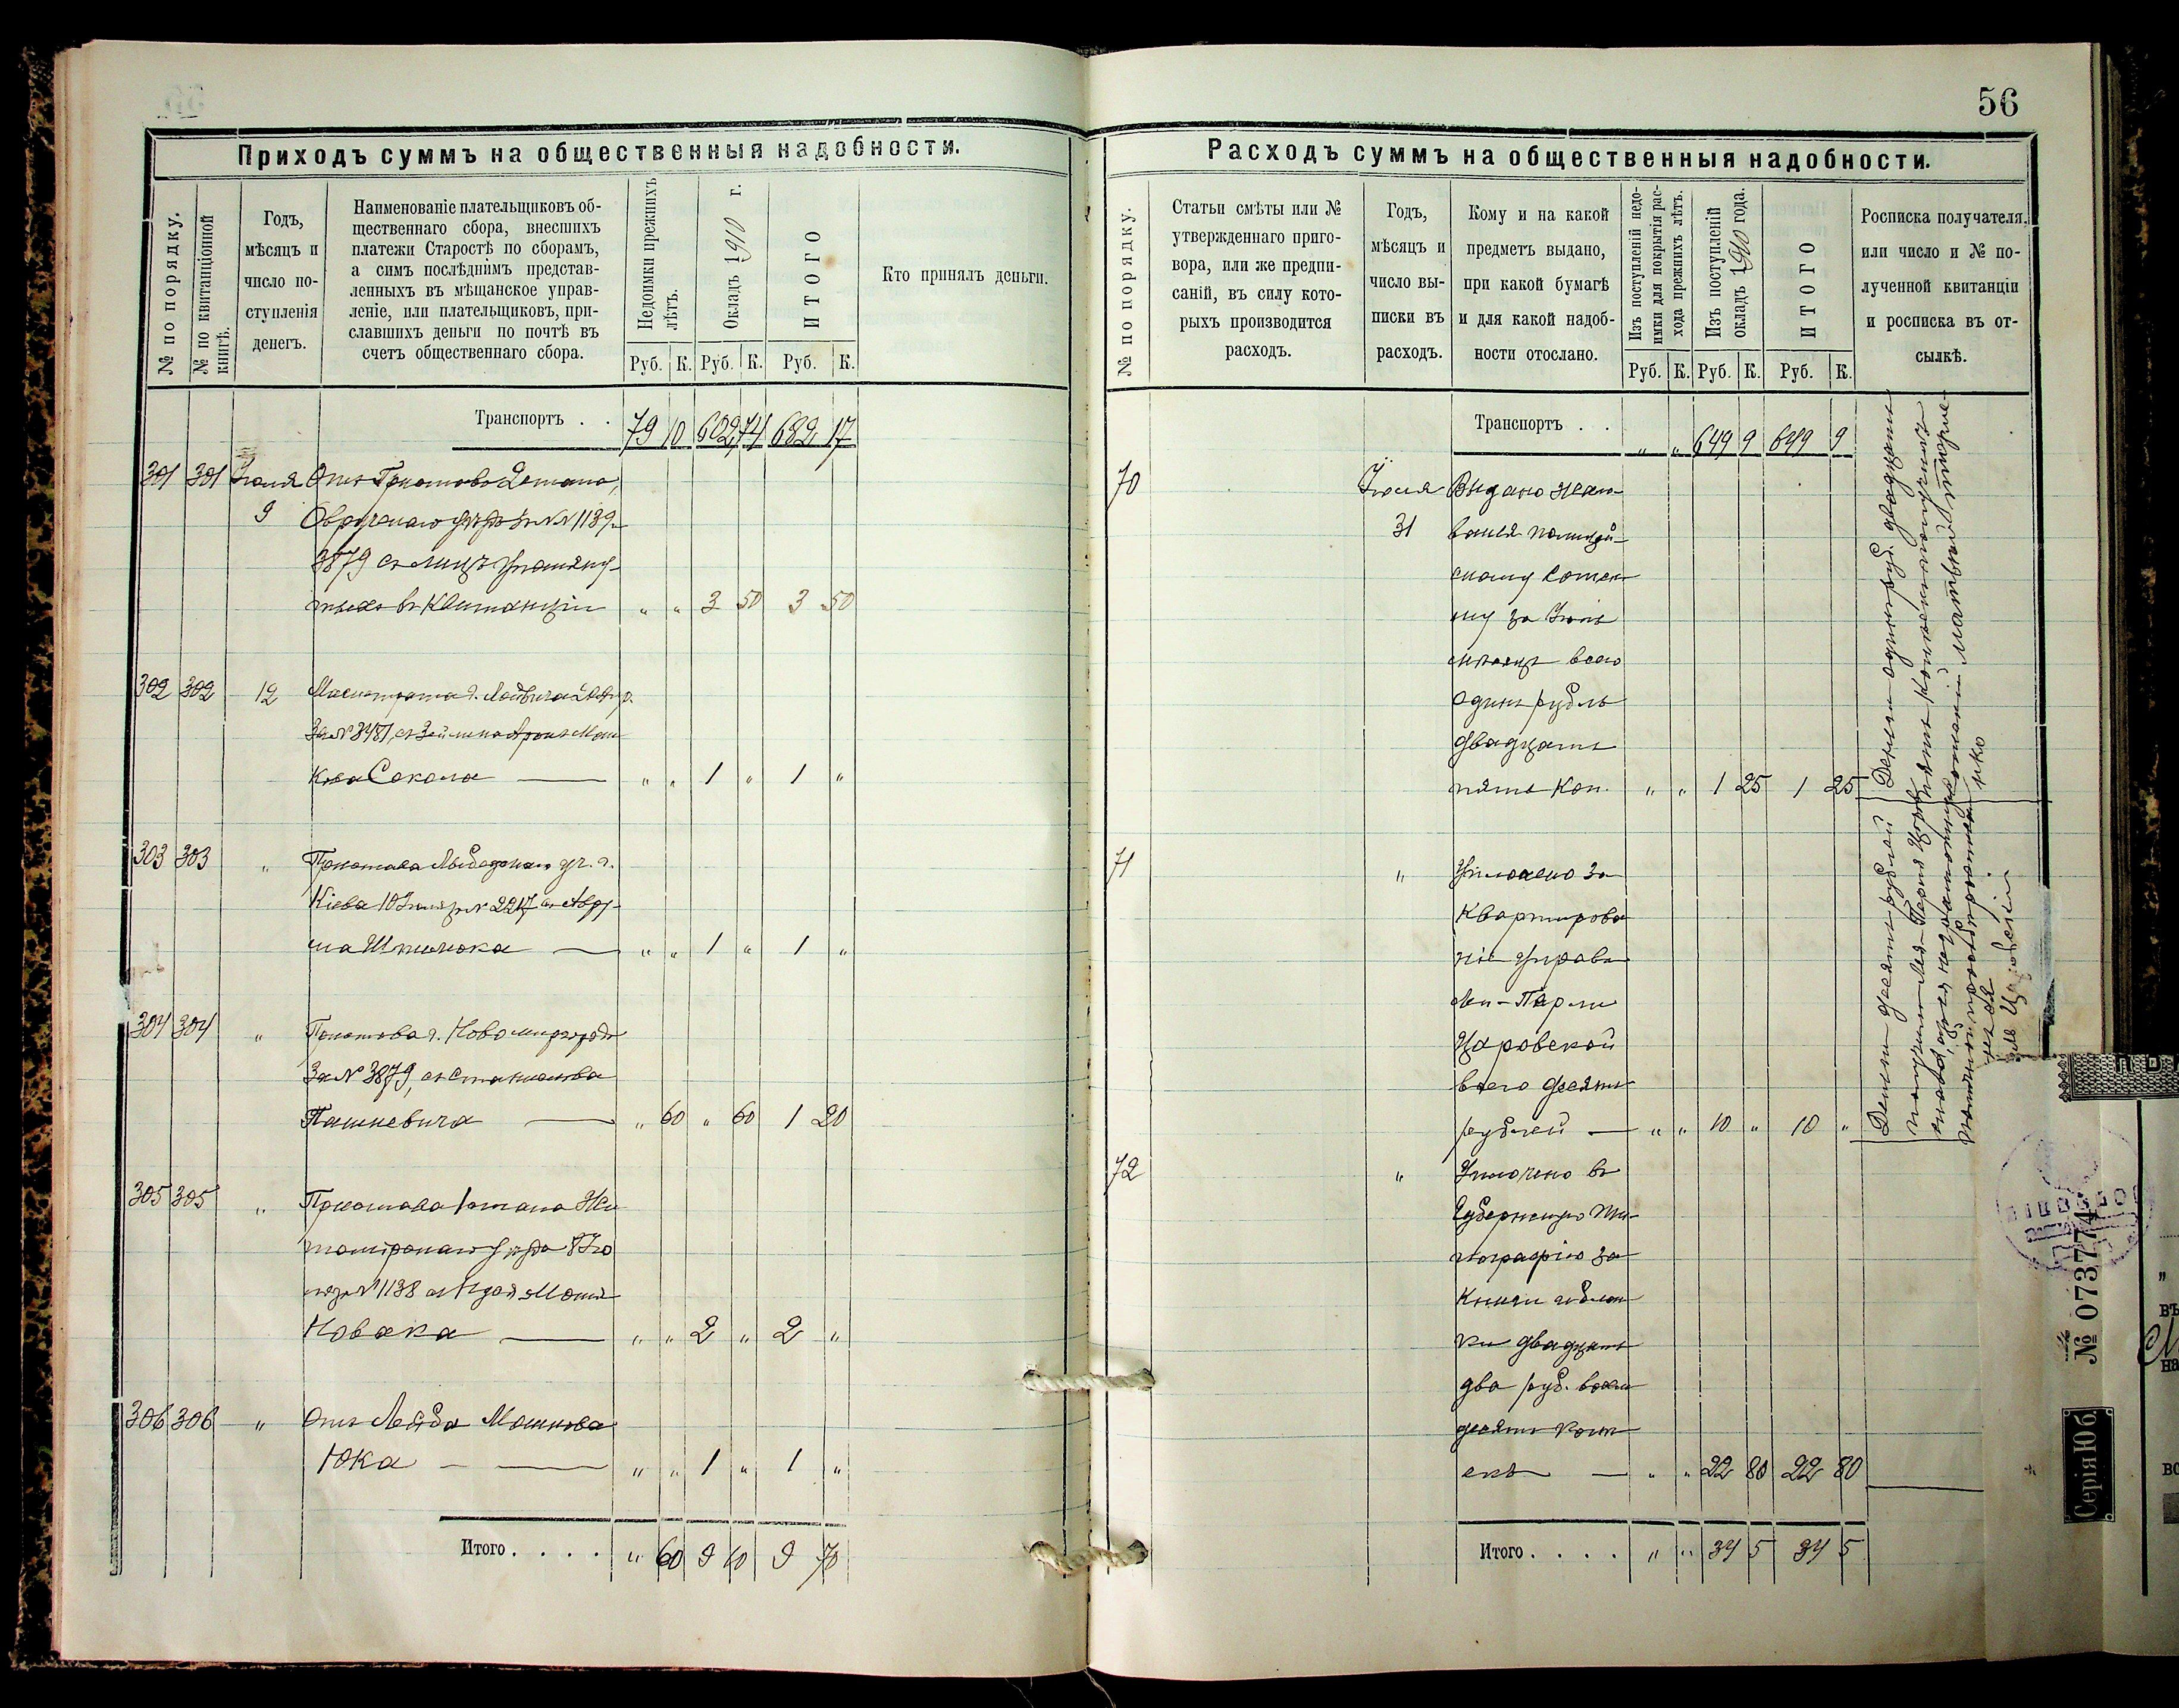 Приходъ суммъ на общественныя надобности.
№ по порядку.
№ по квитанціонной книгѣ.
Годъ,
мѣсяцъ и
число по-
ступленія
денегъ.
Наименованіе плательщиковъ об-
щественнаго сбора, внесшихъ
платежи Старостѣ по сборамъ,
а симъ послѣднимъ представ-
ленныхъ въ мѣщанское управ-
леніе, или плательщиковъ, при-
славшихъ деньги по почтѣ въ
счетъ общественнаго сбора.
Недоимки прежнихъ
лѣтъ.
Окладъ 1910 г.
ИТОГО
Кто принялъ деньги.
Руб. К. Руб. К. Руб. К.
Транспортъ . . 79 10 602 74 682 17
301 301 Іюля Отъ Пристава 2 стана,
9 Овручскаго уѣзда за №№ 1139-
3879 съ лицъ упомяну-
тыхъ въ квитанціи " " 3 50 3 50
302 302 12
За № 3481, съ Арона Мош
кова Сокола — " " 1 " 1 "
303 303 " Пристава Лыбедскаго уч. г.
Кіева 10 Іюля за № 2217 съ Авру-
ма — " " 1 " 1 "
304 304 " Пристава г. Новомиргорода
За № 3879, съ Станислава
Пашкевича — " 60 " 60 1 20
305 305 " Пристава 1 стана Жи
томірскаго уѣзда 8 Ію
ля за № 1138 съ
Новака — " " 2 " 2 "
306 306 " Отъ Лейба Мошкова
Юка — — " " 1 " 1 "
Итого . . . . " 60 9 10 9 70
56
Расходъ суммъ на общественныя надобности.
№ по порядку.
Статьи смѣты или №
утвержденнаго приго-
вора, или же предпи-
саній, въ силу кото-
рыхъ производится
расходъ.
Годъ,
мѣсяцъ и
число вы-
писки въ
расходъ.
Кому и на какой
предметъ выдано,
при какой бумагѣ
и для какой надоб-
ности отослано.
Изъ поступленій недо-
имки для покрытія рас-
хода прежнихъ лѣтъ.
Изъ поступленій
окладъ 1910 года.
ИТОГО
Росписка получателя,
или число и № по-
лученной квитанціи
и росписка въ от-
сылкѣ.
Руб. К. Руб. К. Руб. К.
Транспортъ . . " " 649 9 649 9
70 Іюля Выдано жало-
31 ванья полицей-
скому сотск
му за Іюль
мѣсяцъ всего
одинъ рубль
двадцать
пять коп. " " 1 25 1 25
Деньги одинъ руб. двадцать
пять копѣекъ получилъ
71 " Уплочено за
квартирова
ніе Управы
Леи-Перли
Царовской
всего десять
рублей — " " 10 " 10 "
Деньги десять рублей
получила Лея-Перля Царов
ская
72 " Уплочено въ
Губернскую ти-
пографію за
книги и блан
ки двадцать
два руб. восем
десятъ копѣ
екъ — " " 22 80 22 80
Итого . . . . " " 34 5 34 5
№ 073774
Серія Юб.